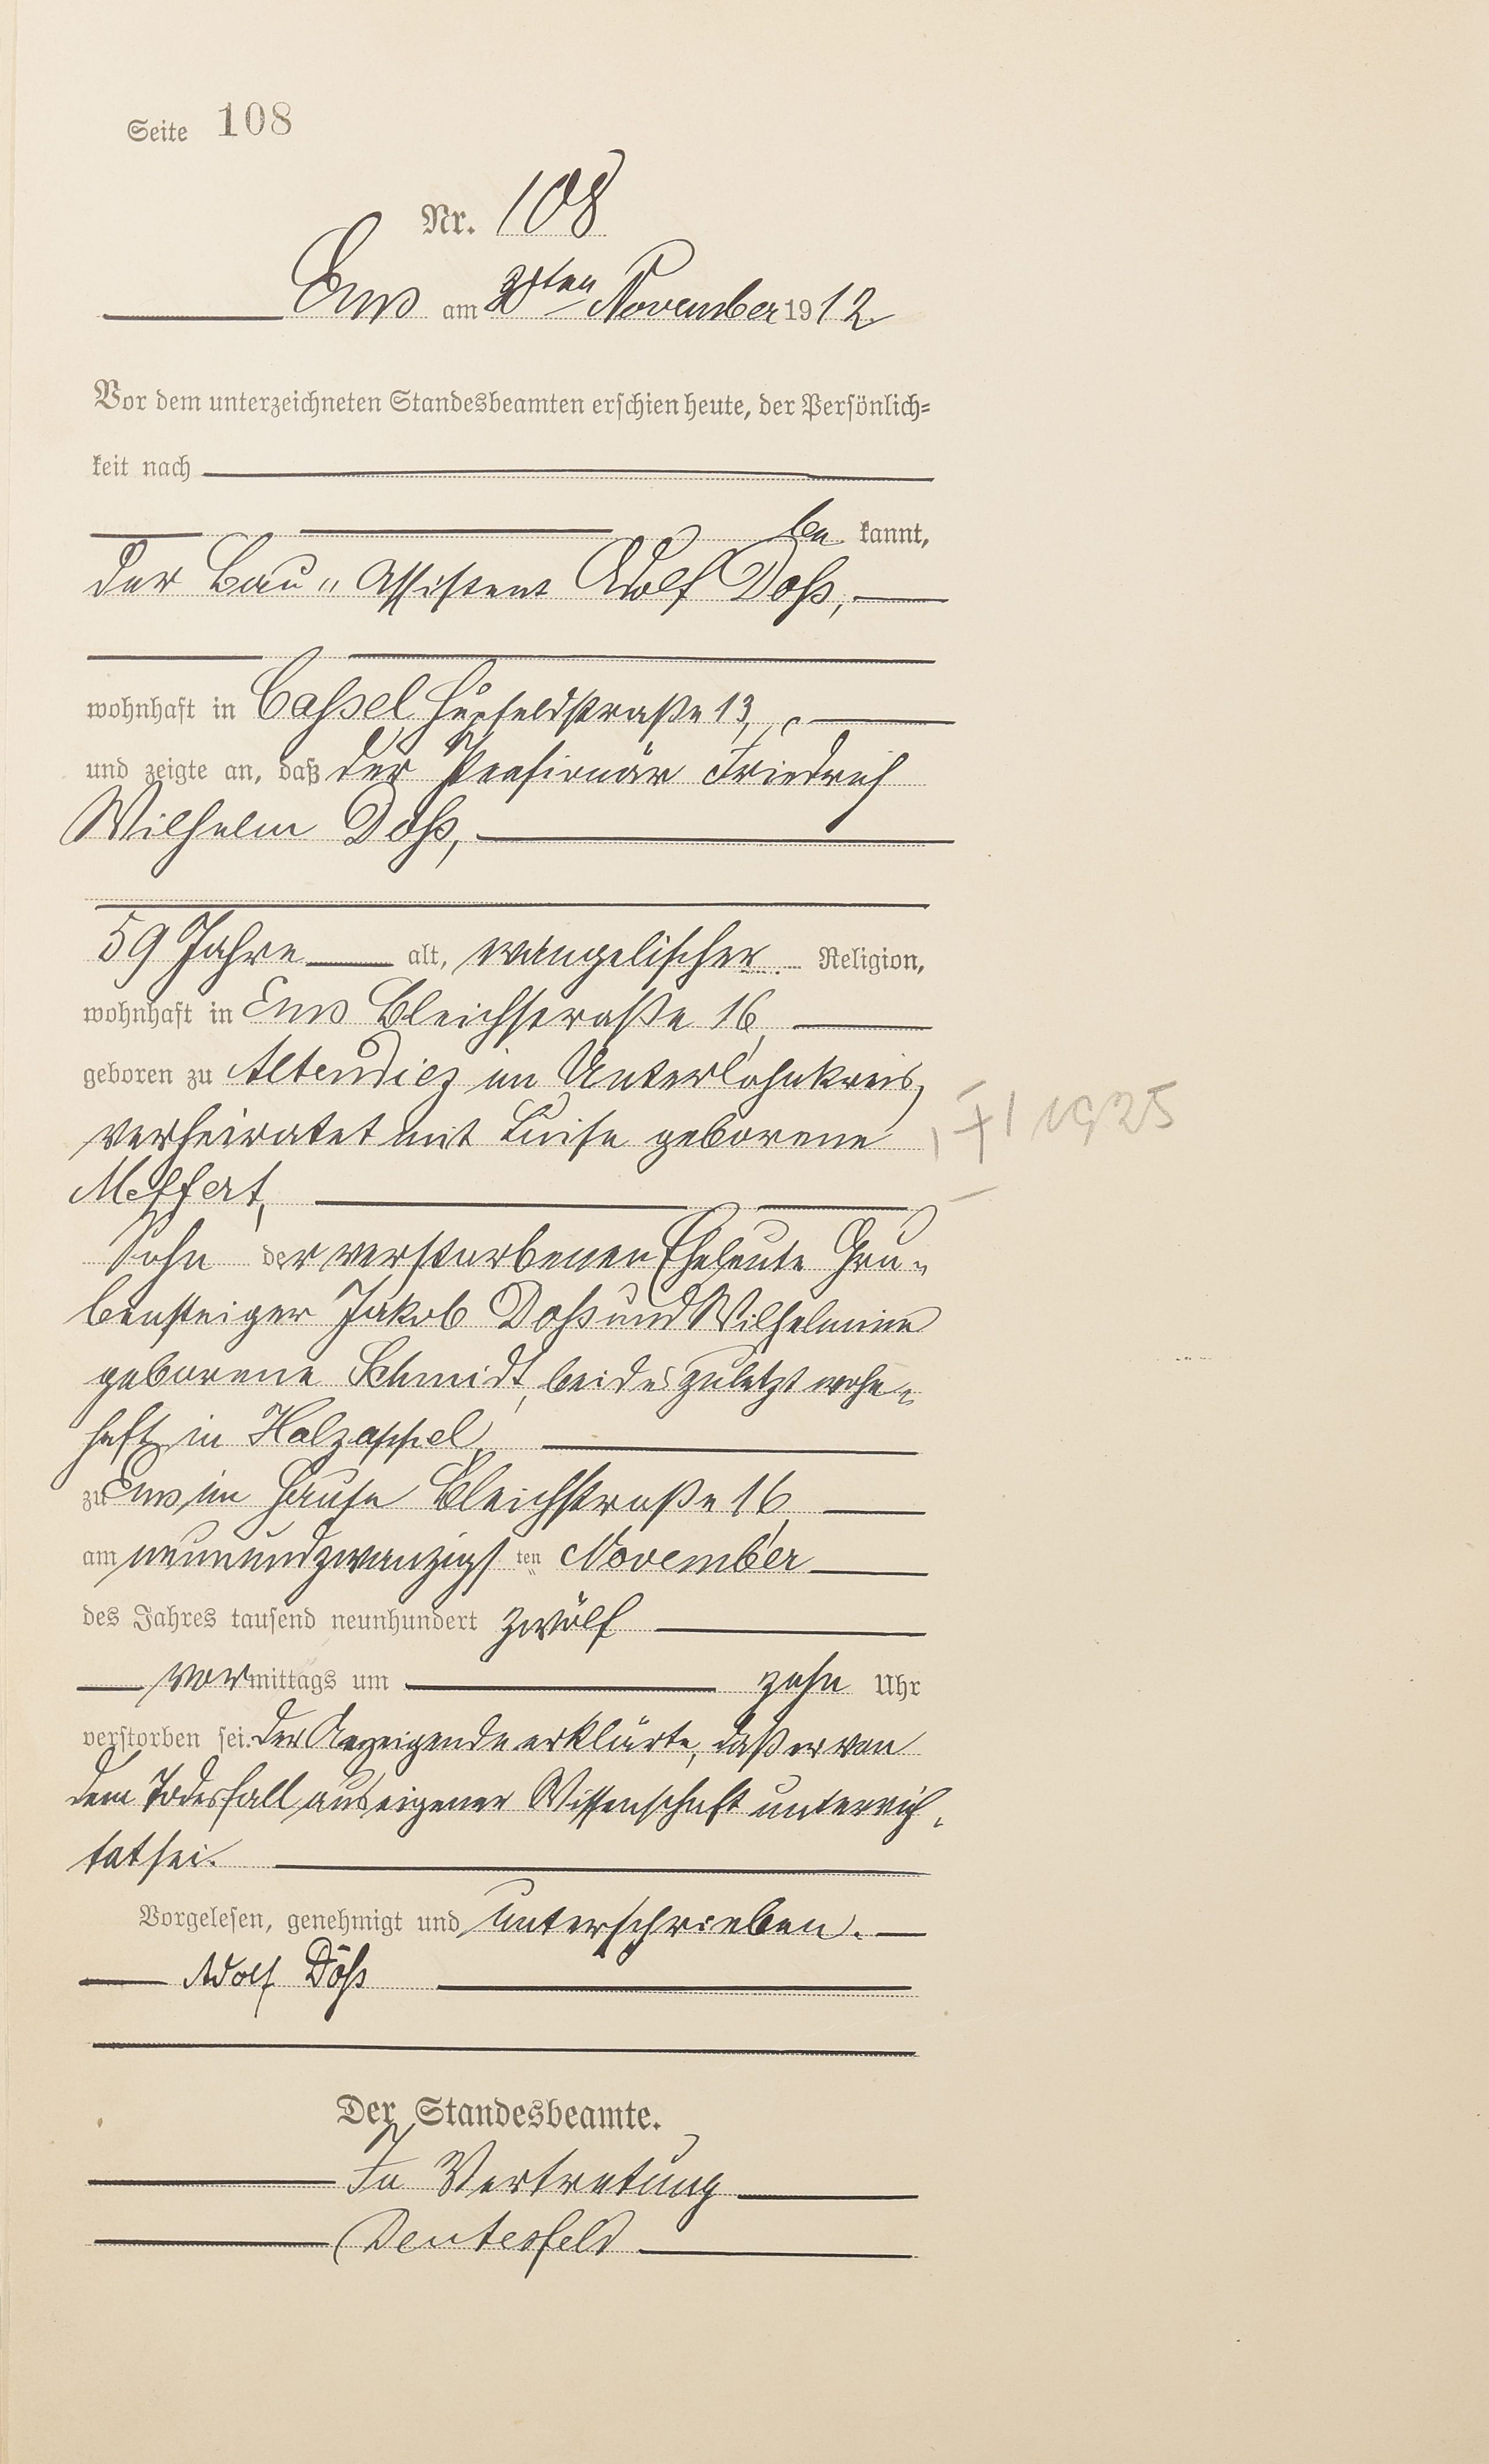 Seite 108
Nr. 108
Ems am 30ten November 1912.
Vor dem unterzeichneten Standesbeamten erschien heute, der Persönlich-
keit nach
be kannt,
der Bau-Assistent Adolf Döß,
wohnhaft in Cassel Hupfeldstraße 13,
und zeigte an, daß der Pensionär Friedrich
Wilhelm Döß,
59 Jahre alt, evangelischer Religion,
wohnhaft in Ems Bleichstraße 16,
geboren zu Altendiez im Unterlahnkreis,
verheiratet mit Luise geborene
Meffert,
Sohn der verstorbenen Eheleute Gru-
bensteiger Jakob Döß und Wilhelmine
geborene Schmidt, beide zuletzt wohn-
haft in Holzappel,
zu Ems im Hause Bleichstraße 16,
am neunundzwanzigsten November
des Jahres tausend neunhundert zwölf
vormittags um zehn Uhr
verstorben sei. Der Anzeigende erklärte, daß er von
dem Todesfall aus eigener Wissenschaft unterrich-
tet sei.
Vorgelesen, genehmigt und unterschrieben.
Adolf Döß
Der Standesbeamte.
In Vertretung
1925